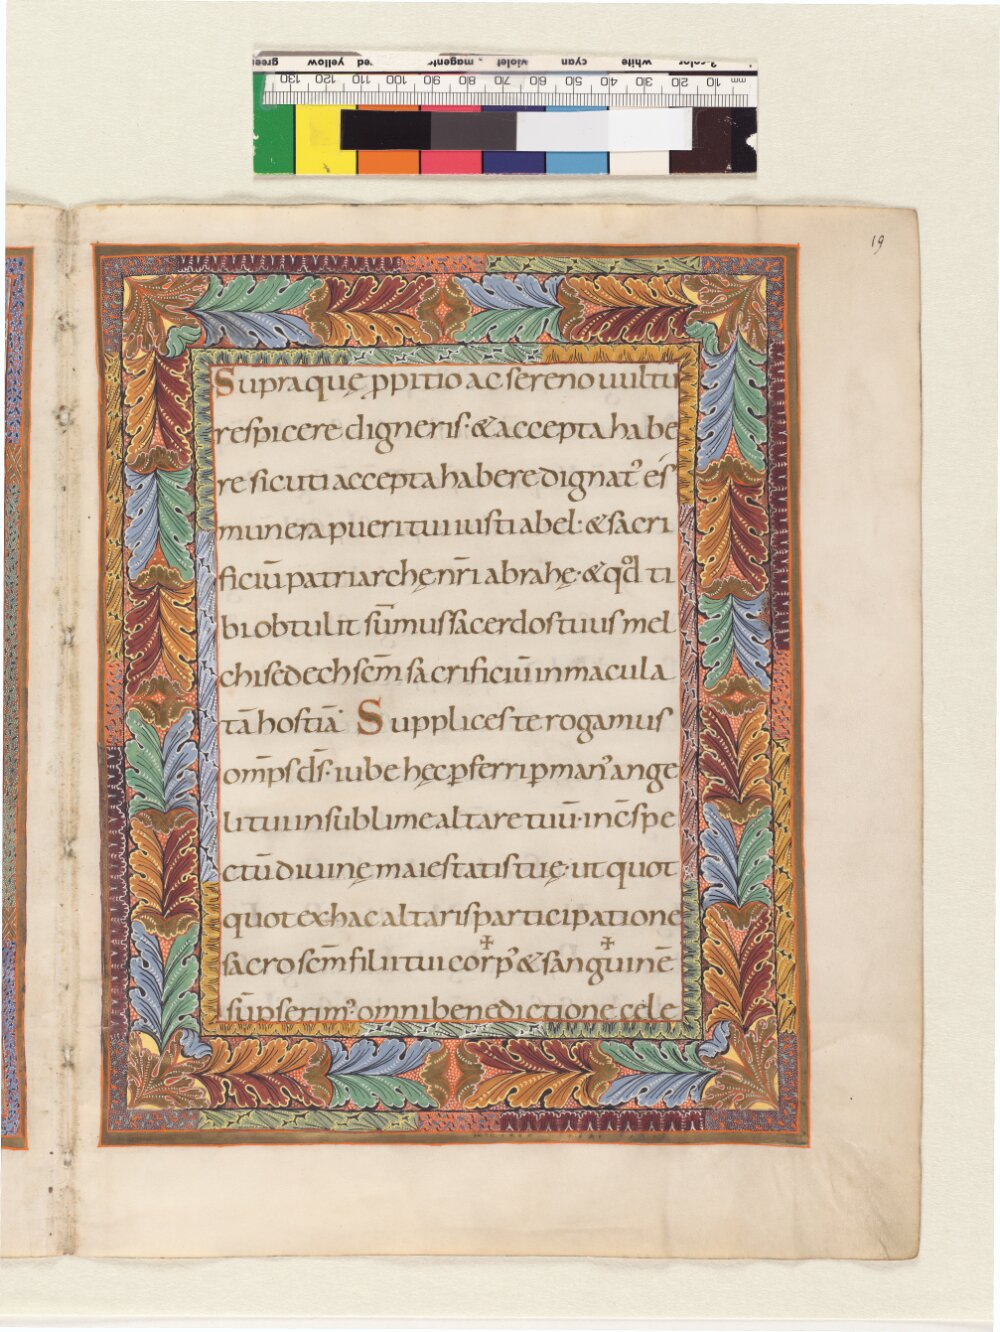 green yellow red 3-color magenta violet cyan white
mm 10 20 30 40 50 60 70 80 90 100 110 120 130
19
Supraquę ꝓpitio ac sereno uultu
respicere digneris· & accepta habe
re sicuti accepta habere dignat᾽ és
munera pueri tui iusti abel· & sacri
ficiū patriarchę nr̄i abrahę· & qđ ti
bi obtulit sūmus sacerdos tuus mel
chisedech sc̄m sacrificiū inmacula
tā hostiā· Supplices te rogamus
omp̄s d̄s· iube hęc ꝑferri ꝑ man᾽ ange
li tui in sublime altare tuū· in c̄spe
ctū diuinę maiestatis tuę· ut quot
quot ex hac altaris participatione
sacros c̄m filii tui cor✝p᾽ & san✝guinē
sūpserim᾽· omni benedictione cęle